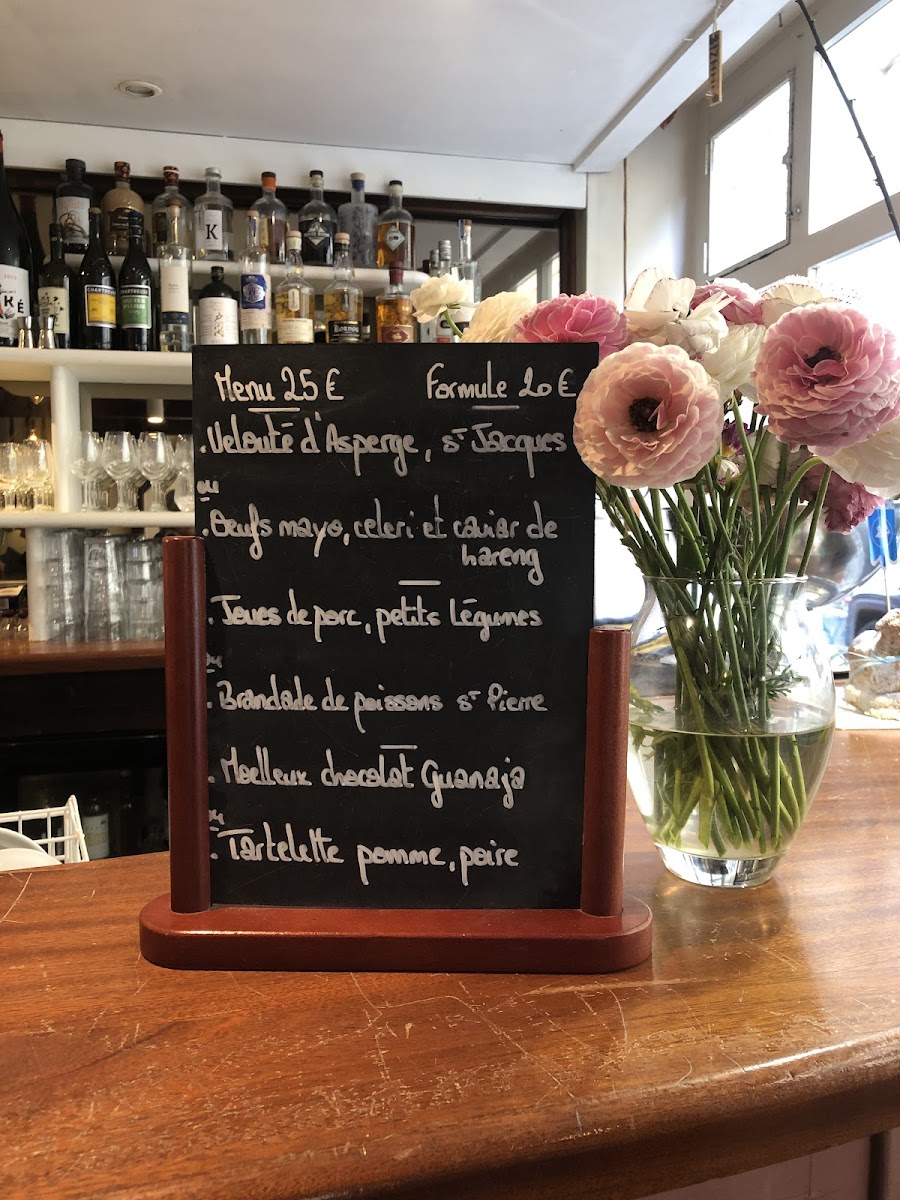 K
CHARTREUSE
CHARTREUSE
Menu 25 € Formule 20 €
. Velouté d'Asperge, St Jacques
ou
. Oeufs mayo, celeri et caviar de
hareng
. Joues de porc, petits légumes
ou
. Brandade de poissons St Pierre
. Moelleux chocolat Guanaja
ou
. Tartelette pomme, poire